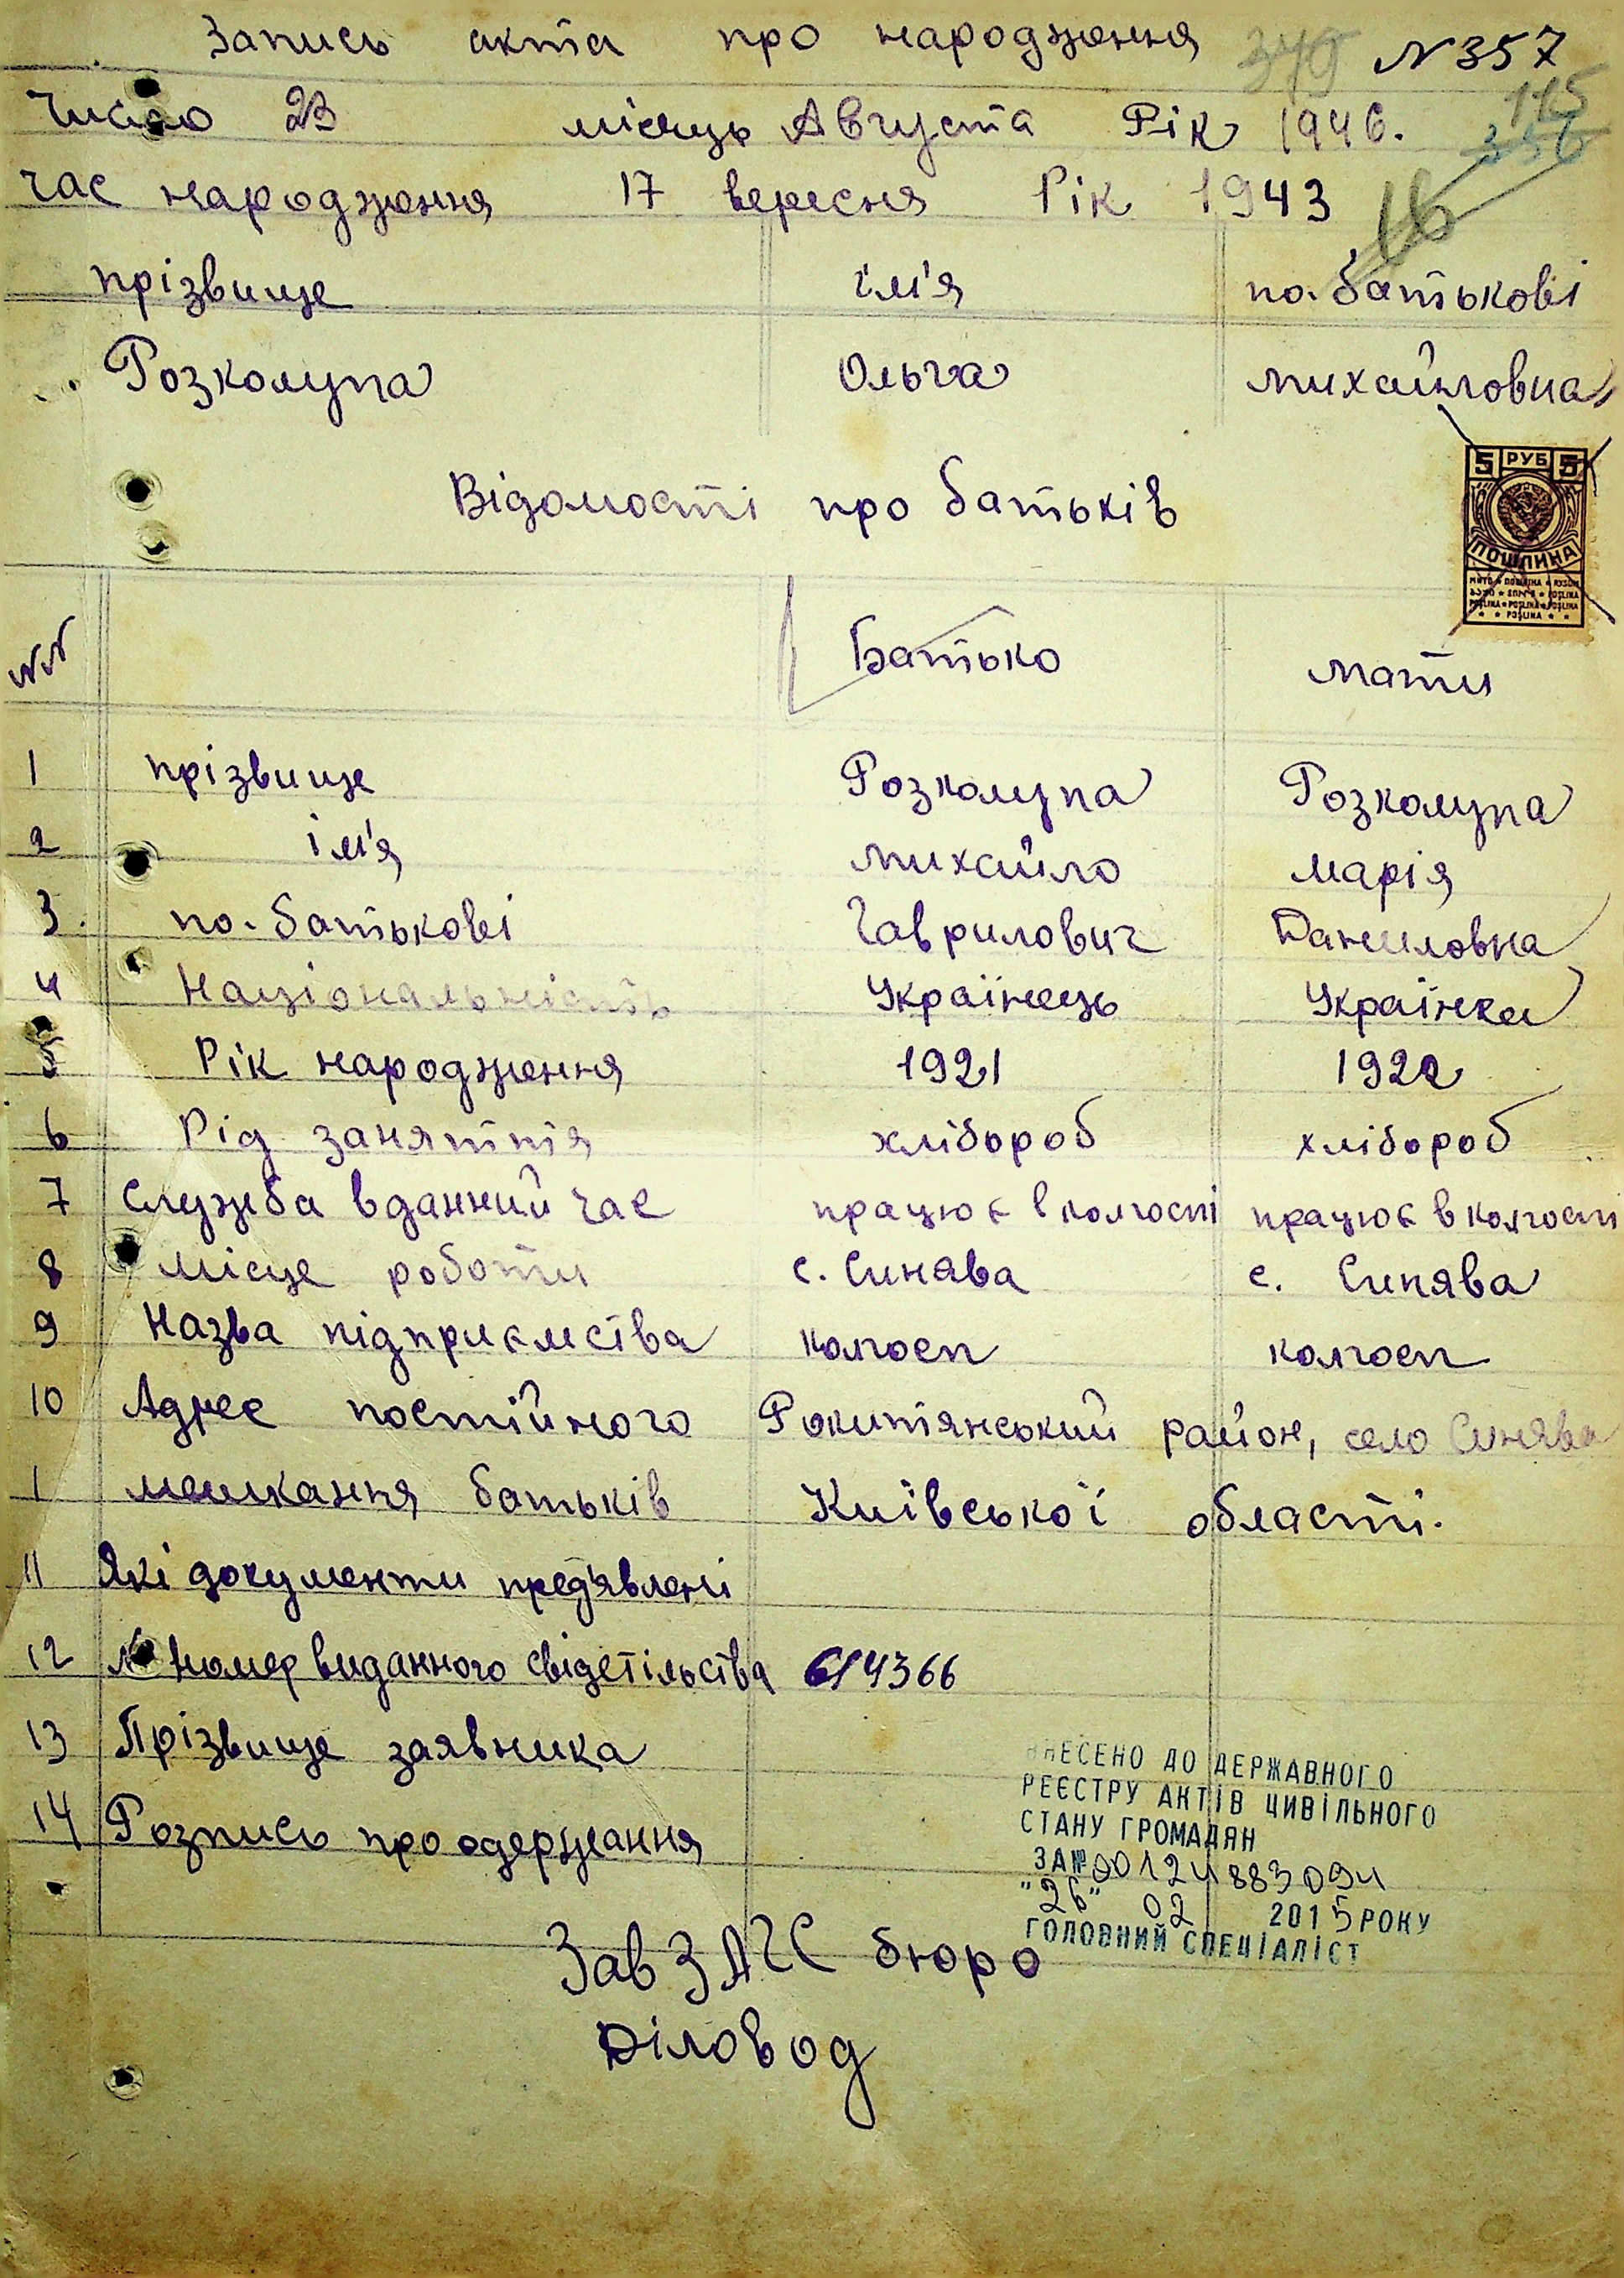 Запись акта про народження N 357
число 23 місяць Августа Рік 1946.
час народження 17 вересня Рік 1943
прізвище ім'я по-батькові
Розколупа Ольга михайловна
Відомості про батьків
5 РУБ 5
ПОШЛИНА
NN Батько мати
1 прізвище Розколупа Розколупа
2 ім'я михайло марія
3. по-батькові Гаврилович Даниловна
4 Національність Українець Українка
5 Рік народження 1921 1922
6 Рід заняття хлібороб хлібороб
7 служба в данний час працює в колгоспі працює в колгоспі
8 місце роботи с. Синява с. Синява
9 Назва підприємства колгосп колгосп
10 Адрес постійного Рокитянський район, село Синява
1 мешкання батьків Київської області.
11 Які документи предявлені
12 № номер виданного свідетільства 614366
13 Прізвище заявника
14 Розпись про одержання
ВНЕСЕНО ДО ДЕРЖАВНОГО
РЕЄСТРУ АКТІВ ЦИВІЛЬНОГО
СТАНУ ГРОМАДЯН
ЗА № 00124883094
"26" 02 2015 РОКУ
ГОЛОВНИЙ СПЕЦІАЛІСТ
Зав ЗАГС бюро
Діловод